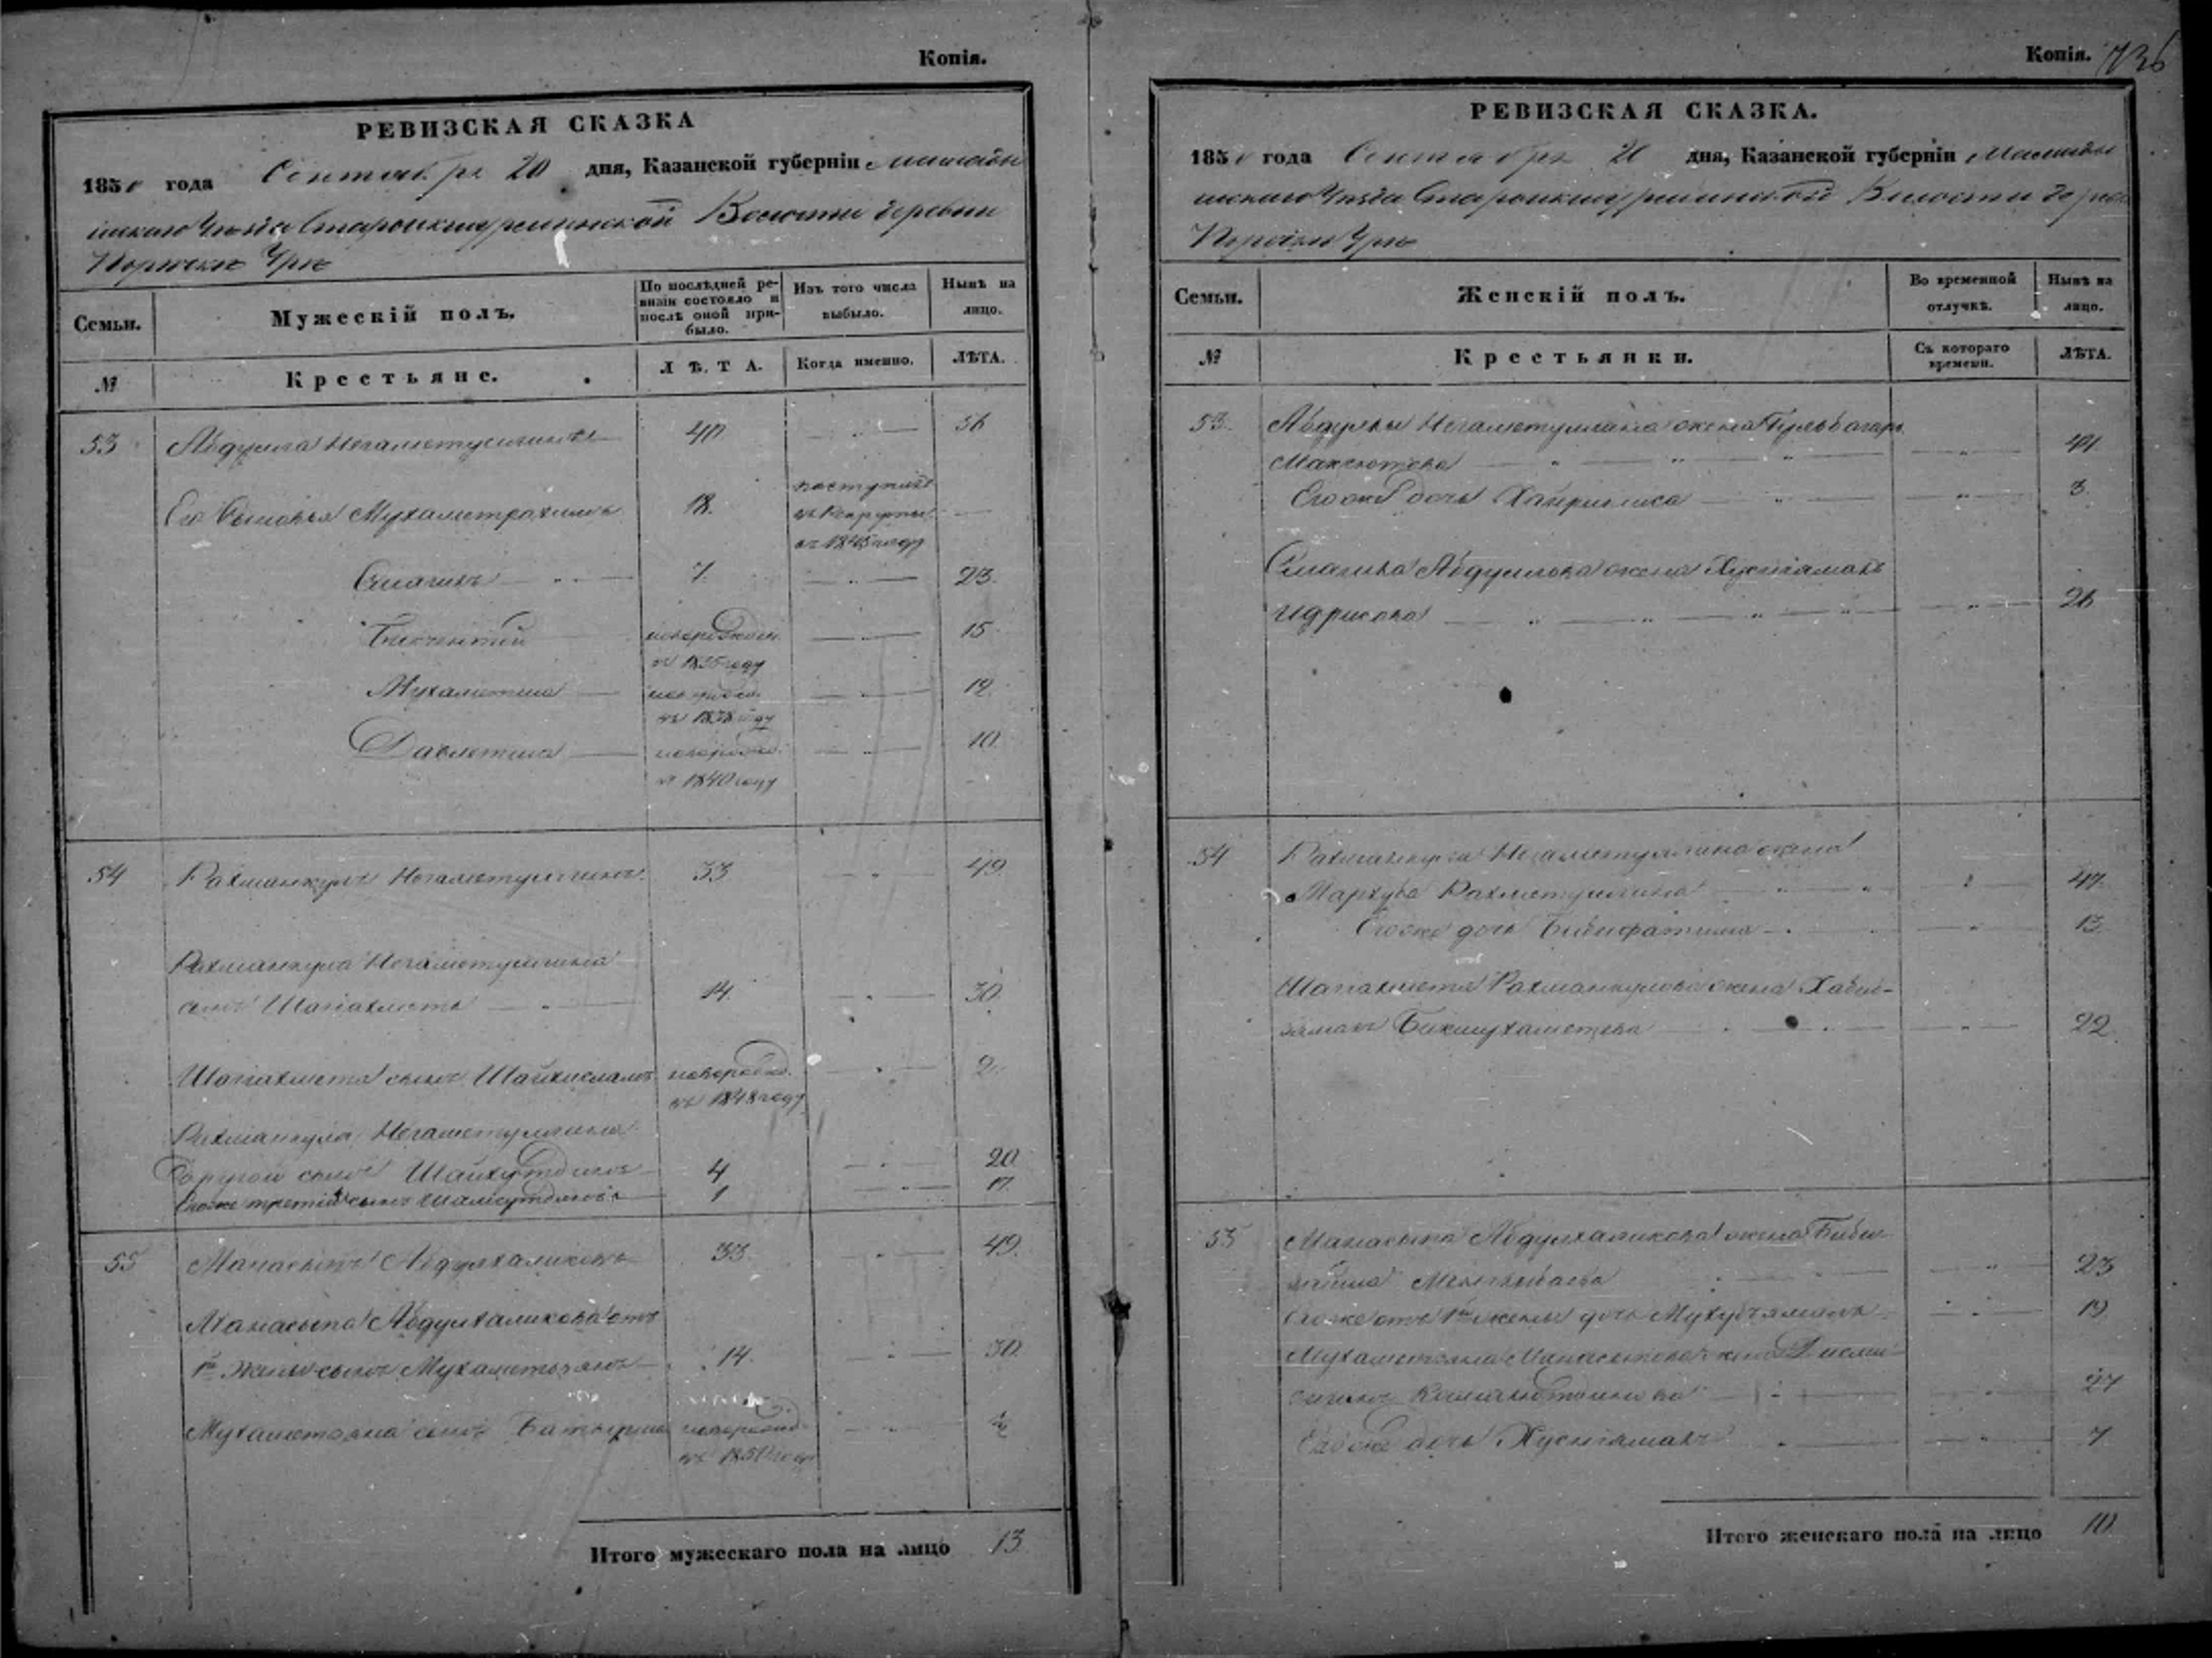 Копія.
РЕВИЗСКАЯ СКАЗКА
1850 года Сентября 20 дня, Казанской губерніи Мамады
шскаго Уѣзда Старокишурминской Волости деревни
Порѣски Уря
Семьи.
Мужескій полъ.
По послѣдней ре-
визіи состояло и
послѣ оной при-
было.
Изъ того числа
выбыло.
Нынѣ на
лицо.
№
Крестьяне.
ЛѢТА.
Когда именно.
ЛѢТА.
53 Абдулла Негаметуллинъ 40 56
Его Сыновья Мухаметрахимъ 18. поступилъ
въ рекруты
въ 1845 году
Смагилъ 7. 23.
Бикчентей новорожден. 15
въ 1835 году
Мухаметша новорожд. 12.
въ 1838 году
Давлетша новорожд. 10.
въ 1840 году
54 Рахманкулъ Негаметуллинъ 33 49.
Рахманкула Негаметуллина
сынъ Шагіахметъ 14. 30.
Шагіахмета сынъ Шайхисламъ новорожд. 2.
въ 1848 году
Рахманкула Негаметуллина
другой сынъ Шайхутдинъ 4 20
Егоже третій сынъ Шамсутдинъ 1 17.
55 Манасыпъ Абдулхаликовъ 33. 49.
Манасыпа Абдулхаликова отъ
1й жены сынъ Мухаметзянъ 14. 30.
Мухаметзяна сынъ Батырша новорожд.
въ 1850 году
Итого мужескаго пола на лицо 13.
Копія. 736
РЕВИЗСКАЯ СКАЗКА.
1850 года Сентября 20 дня, Казанской губерніи Мамады
шскаго Уѣзда Старокишурминской Волости дерев
Порѣски Уря
Семьи.
Женскій полъ.
Во временной
отлучкѣ.
Нынѣ на
лицо.
№
Крестьянки.
Съ котораго
времени.
ЛѢТА.
53. Абдуллы Негаметуллина жена Гульбагаръ
Максютова 41.
Егоже дочь Хайрниса 3.
Смагила Абдуллова жена Хуснизамалъ
Идрисова 26
54 Рахманкула Негаметуллина жена
Мархуба Рахметуллина 47.
Егоже дочь Бибифатима 13.
Шагіахмета Рахманкулова жена Хабиб-
замалъ Бикмухаметева 22.
55 Манасыпа Абдулхаликова жена Биби
23
Егоже отъ 1й жены дочь 19.
Мухаметзяна Манасыпова жена
Камалютдинова 27
Егоже дочь Хуснизамалъ 7.
Итого женскаго пола на лицо 10.